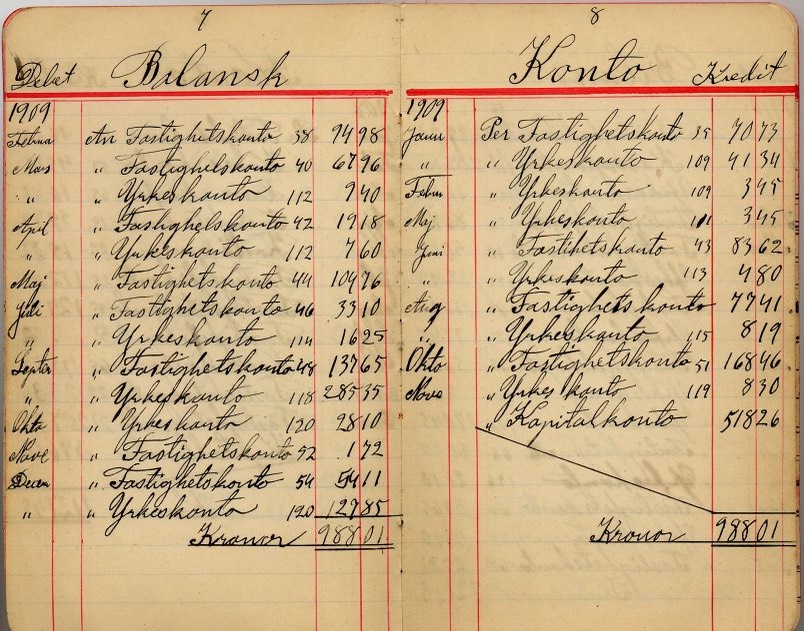 7
Debet Bilansk
1909
Februa An Fastighetskonto 38 9498
Mars " Fastighetskonto 40 6796
" " Yrkeskonto 112 940
April " Fastighetskonto 42 1918
" " Yrkeskonto 112 760
Maj " Fastighetskonto 44 10476
Juli " Fastighetskonto 46 3310
" " Yrkeskonto 114 1625
Septem " Fastighetskonto 48 13765
" " Yrkeskonto 118 28535
Okto " Yrkeskonto 120 2810
Nove " Fastighetskonto 52 172
Decem " Fastighetskonto 54 5411
" " Yrkeskonto 120 12785
Kronor 98801
8
Konto Kredit
1909
Janu Per Fastighetskonto 35 7073
" " Yrkeskonto 109 4134
Febru " Yrkeskonto 109 345
Maj " Yrkeskonto 111 345
Juni " Fastihetskonto 43 8362
" " Yrkeskonto 113 480
Aug " Fastighetskonto 7741
" " Yrkeskonto 115 819
Okto " Fastighetskonto 51 16846
Nove " Yrkeskonto 119 830
" Kapitalkonto 51826
Kronor 98801